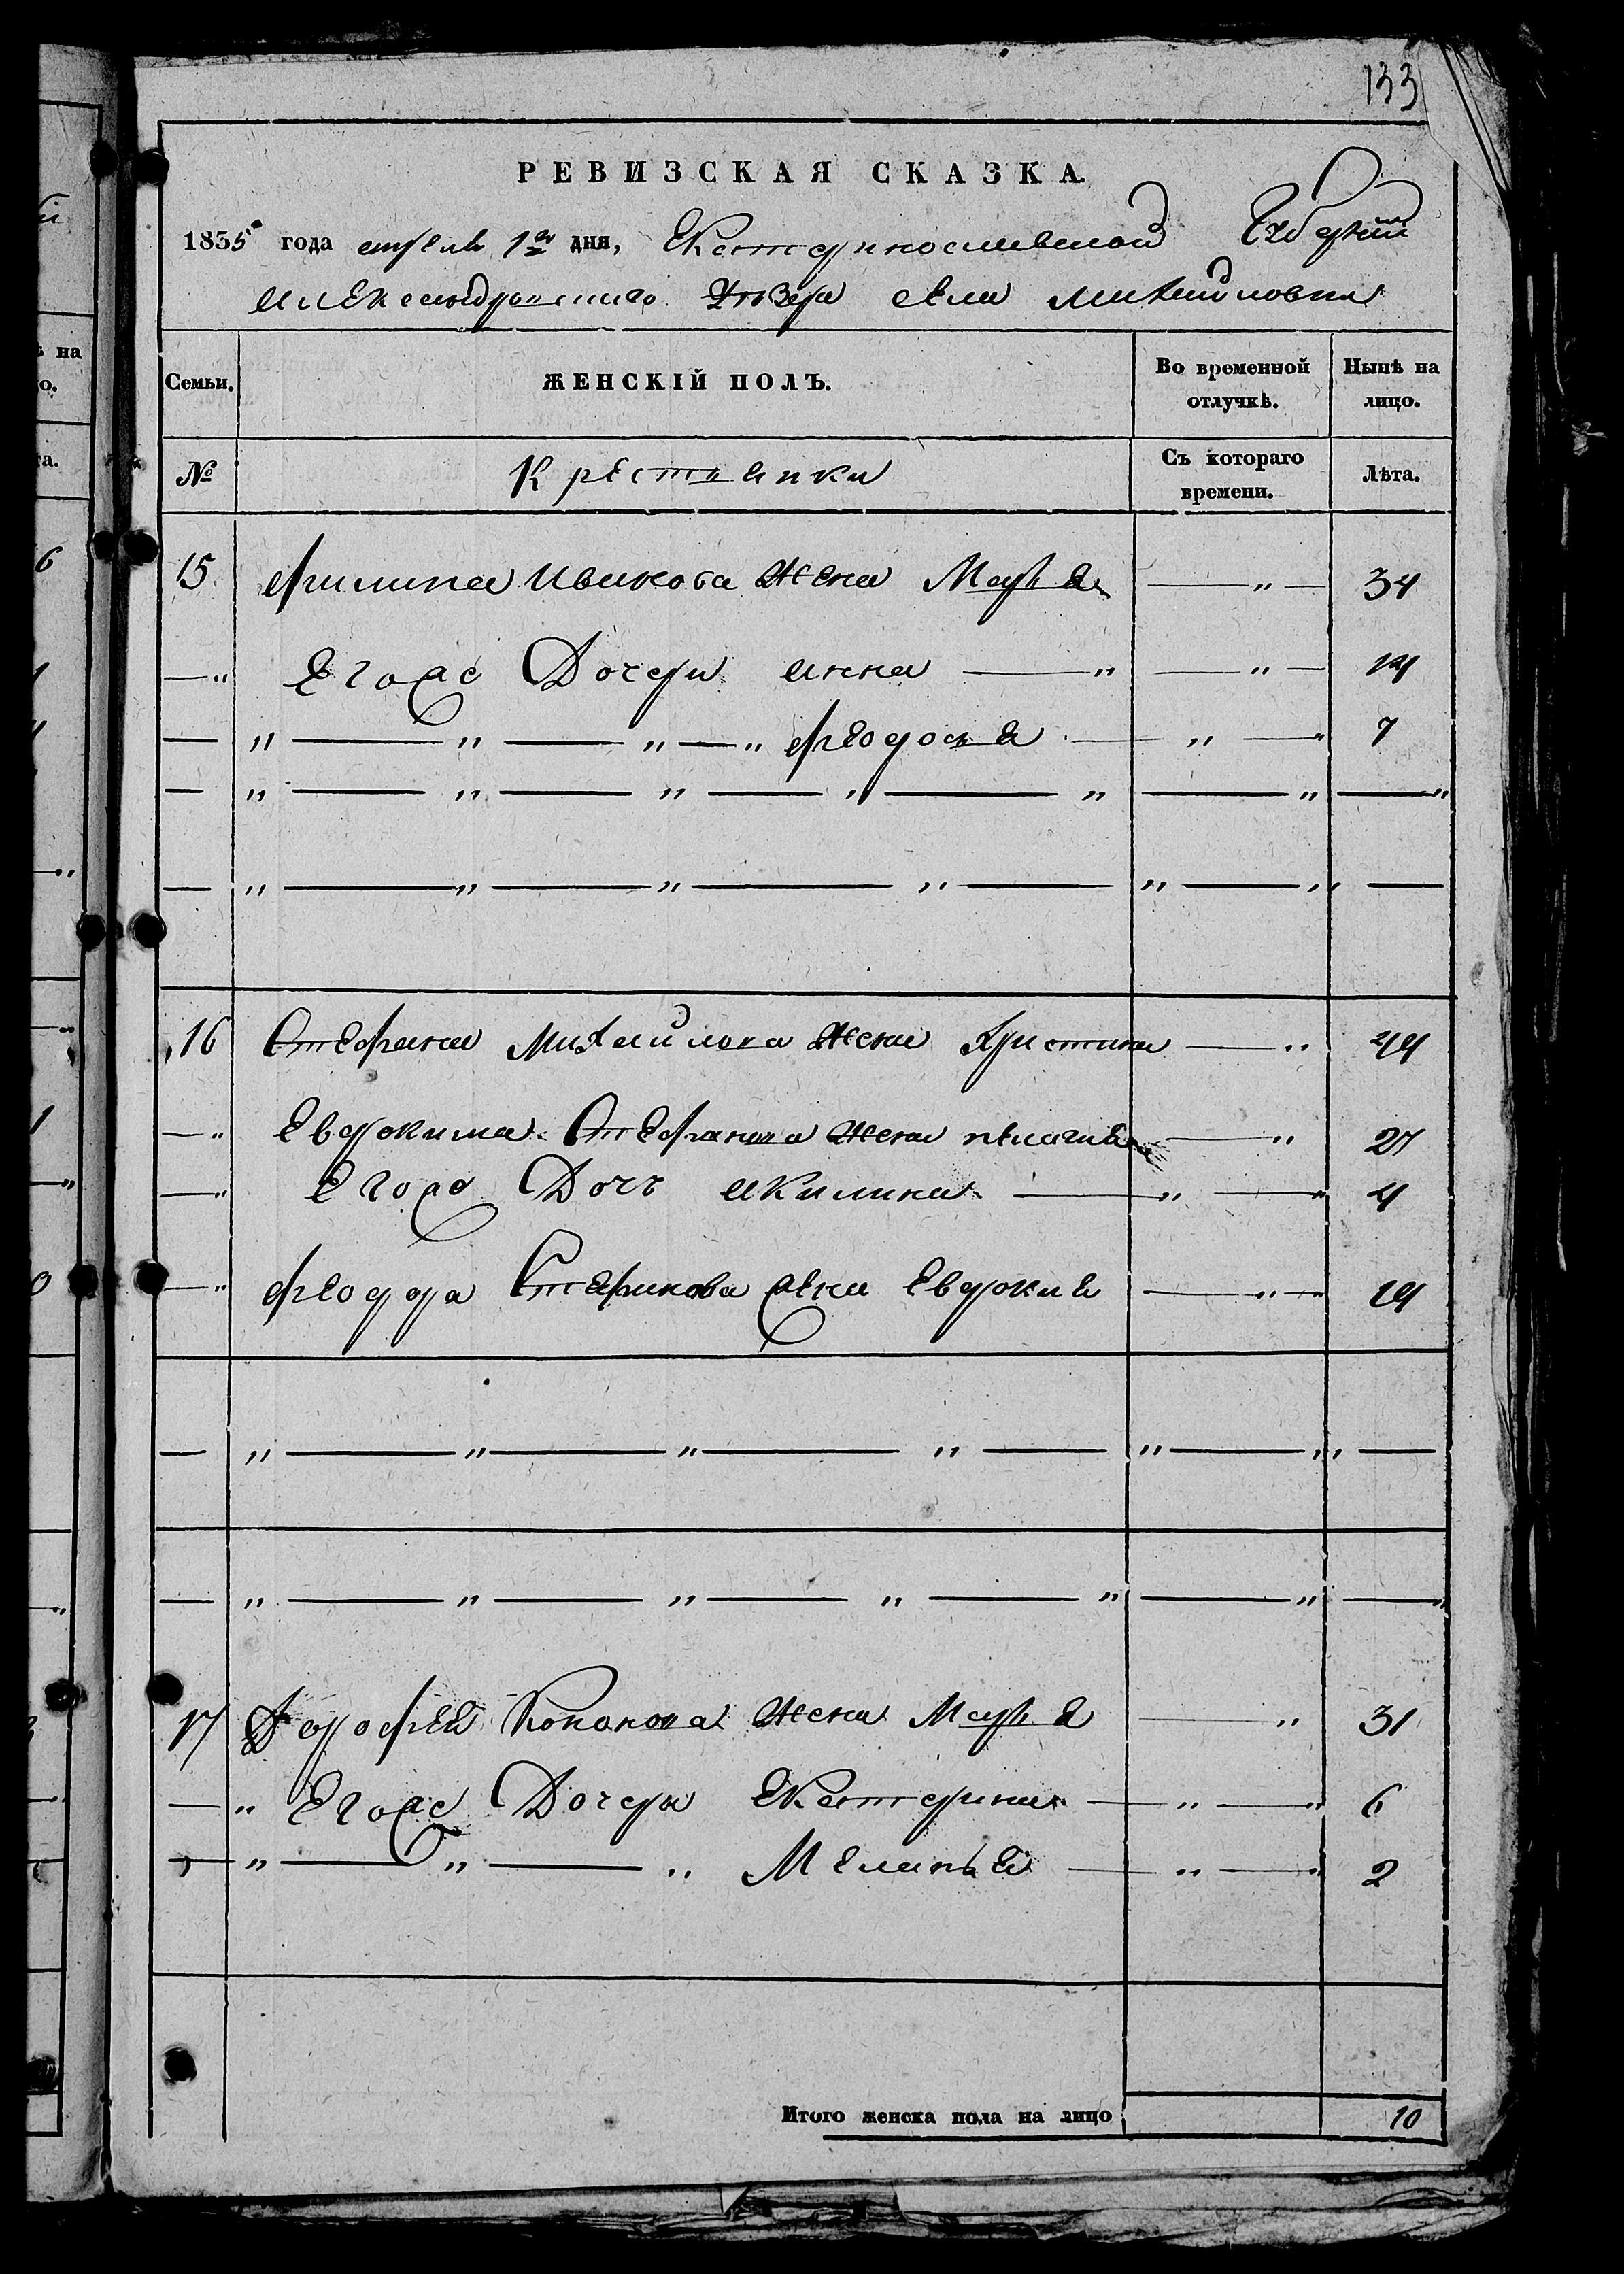 133
РЕВИЗСКАЯ СКАЗКА.
1835 года апреля 1го дня, Екатеринославской Губернии
Александровского Уезда села Михайловки
Семьи.
ЖЕНСКІЙ ПОЛЪ.
Во временной отлучкѣ.
Нынѣ на лицо.
№
Крестьянки
Съ котораго времени.
Лѣта.
15 Филипа Иванова жена Марья — " — 34
— " Егоже Дочери Анна — " — " — 14
— " — " — " — " Феодосья — " — " 7
— " — " — " — " — " — " — "
— " — " — " — " — " — " —
16 Стефана Михайлова жена Христина — " 44
— " Евдокима Стефанова жена пелагия — " 27
— " Егоже Дочь Акилина — " — " 4
— " Феодора Стефанова жена Евдокия — " — " 19
— " — " — " — " — " — " —
— " — " — " — " — " — " — "
17 Дорофей Кононова жена Марья — " 31
— " Егоже Дочери Екатерина — " — " 6
— " — " — " Меланья — " — " 2
Итого женска пола на лицо 10
на
о.
та.
6